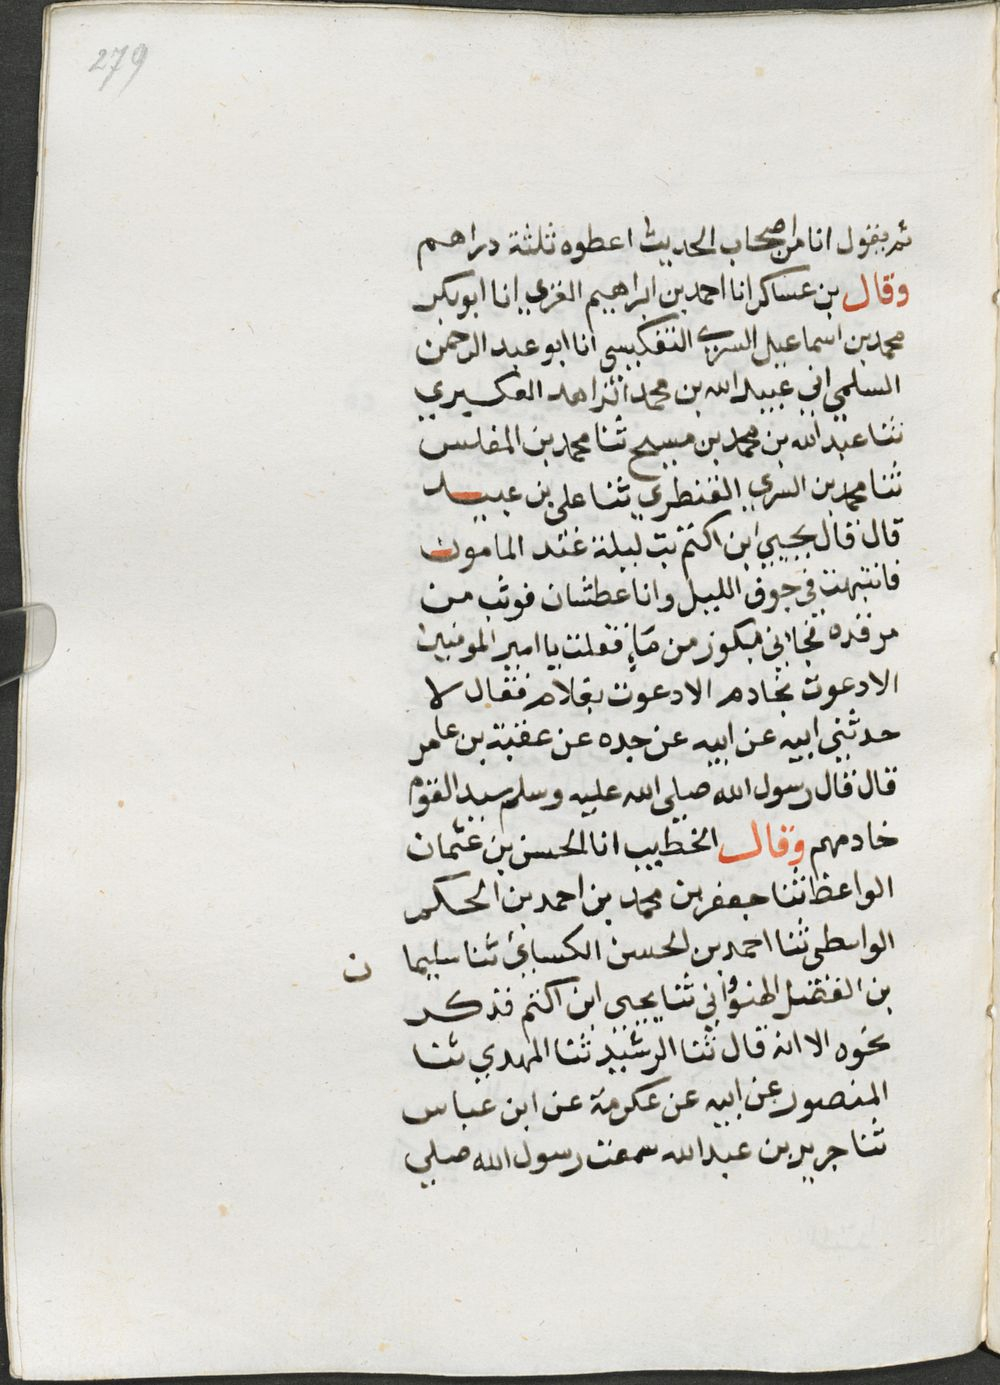 279
ثم يقول انا من اصحاب الحديث اعطوه ثلثة دراهم
وقال بن عساكر انا احمد بن ابراهيم الغزي انا ابو بكر
محمد بن اسماعيل السري التفكيسي انا ابو عبد الرحمن
السلمي اني عبيد الله بن محمد الزاهد العكبري
ثنا عبد الله بن محمد بن مسيح ثنا محمد بن المغلس
ثنا محمد بن السري القنطري ثنا علي بن عبيد
قال قال يحيي ابن اكثم بت ليلة عند المامون
فانتبهت في جوف الليل وانا عطشان فوثب من
مرقده فجاني بكوز من ماء فقلت يا امير المومنين
الا دعوت بخادم الا دعوت بغلام فقال لا
حدثني ابيه عن ابيه عن جده عن عقبة بن عامر
قال قال رسول الله صلي الله عليه وسلم سيد القوم
خادمهم وقال الخطيب انا الحسن بن عثمان
الواعظ ثنا جعفر بن محمد بن احمد بن الحكم
الواسطي ثنا احمد بن الحسن الكسائي ثنا سليما ن
بن الفضل النهرواني ثنا يحيى ابن اكثم فذكر
نحوه الا انه قال ثنا الرشيد ثنا المهدي ثنا
المنصور عن ابيه عن عكرمة عن ابن عباس
ثنا جرير بن عبد الله سمعت رسول الله صلي